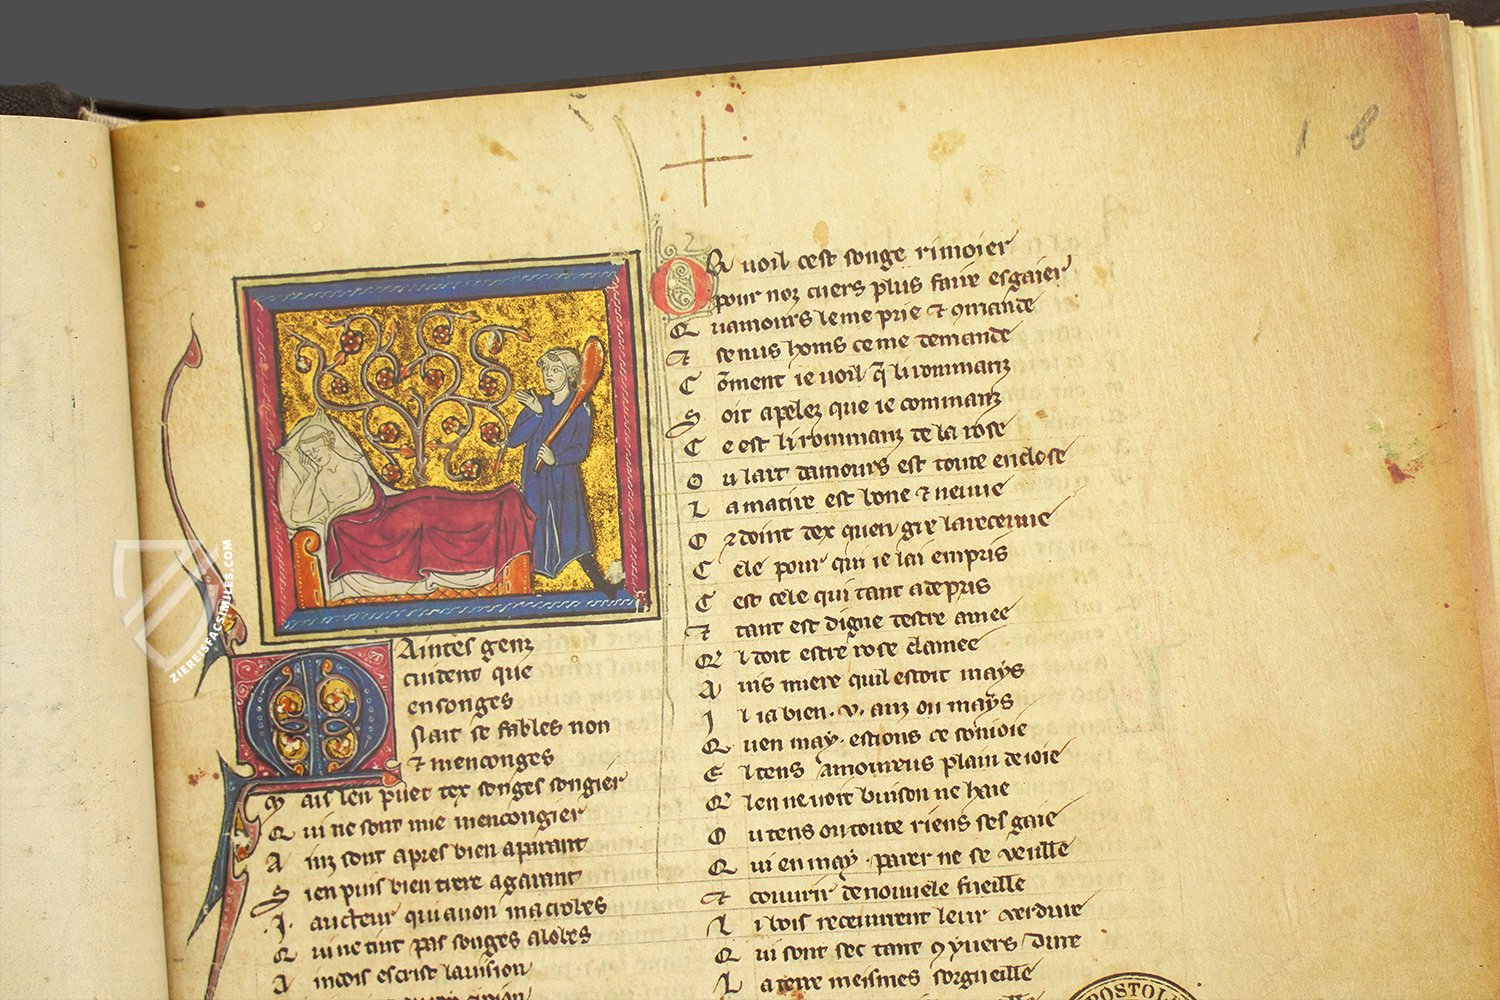 Maintes genz
cuident que
en songes
N ait se fables non
⁊ menconges
M ais len puet tex songes songier
Q ui ne sont mie mencongier
A inz sont apres bien aparant
S i en puis bien trere a garant
.I. aucteur qui a non macrobes
Q ui ne tint pas songes a lobes
A incois escrist la vision
OR voil cest songe rimoier
pour noz cuers plus faire esgaier
Q uamours le me prie ⁊ 9mande
⁊ se nus homs ce me demande
C õment ie voil q̃ li rommanz
S oit apelez que ie commanz
C e est li rommanz de la rose
O u lart damours est toute enclose
L a matire est bone ⁊ neuve
O r doint dex quen gre la recevve
C ele pour qui ie lai empris
C est cele qui tant a de pris
⁊ tant est digne destre amee
Q el doit estre rose clamee
A vis miere quil estoit mays
I l i a bien .v. anz ou mays
Q uen may estions ce sonioie
E l tens amoureus plain de ioie
Q e len ne voit buison ne haie
O u tens ou toute riens sesgaie
Q ui en may parer ne se veuille
⁊ couvrir de nouvele fueille
L i bois recevvrent leur verdure
Q ui sont sec tant 9 yvers dure
L a terre meismes sorgueille
1 8
POSTOLI
ZIEREISFACSIMILES.COM